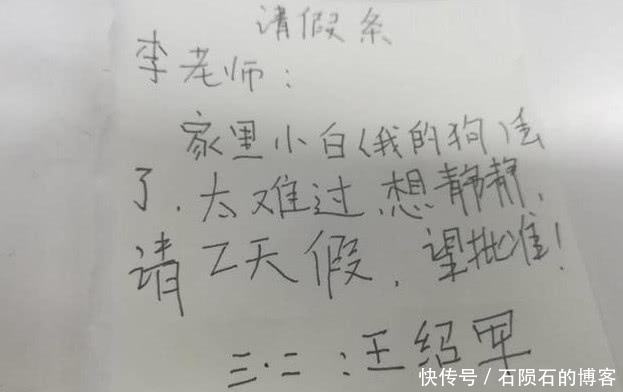 请假条
李老师：
家里小白(我的狗)丢
了.太难过.想静静.
请2天假.望批准!
三·二:王绍军
快传号/石陨石的博客